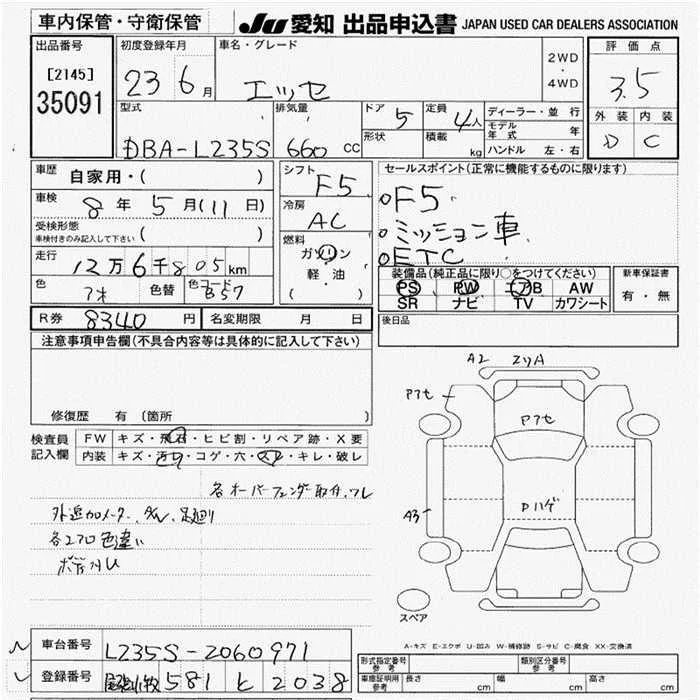 車内保管・守衛保管 JU 愛知 出品申込書 JAPAN USED CAR DEALERS ASSOCIATION
出品番号 初度登録年月 車名・グレード 2WD・4WD 評価点
[2145] 23 6月 エッセ 3.5
35091
型式 排気量 ドア 5 定員 4人 ディーラー・並行 外装 内装
DBA-L235S 660 CC 形状 積載 kg モデル年式 年 D C
ハンドル 左・右
車歴 自家用・( ) シフト F5 セールスポイント(正常に機能するものに限ります)
車検 8年 5月(11日) 冷房 AC oF5
受検形態 ( ) oミッション車
車検付きのみ記入して下さい
燃料 ガソリン oETC
走行 12万6千805km 軽・油 ( ) 装備品(純正品に限り○をつけてください) 新車保証書
色 色替 色コード B57 PS PW エアB AW 有・無
SR ナビ TV カワシート
R券 8340円 名変期限 月 日 後日品
注意事項申告欄(不具合内容等は具体的に記入して下さい)
A2 ZリA
Pアセ
Pアセ
修復歴 有 (箇所 )
検査員記入欄 FW キズ・飛石・ヒビ割・リペア跡・X要
内装 キズ・汚れ・コゲ・穴・スレ・キレ・破レ
各オーバーフェンダー取付、ワレ
Dハゲ
A3
外追加メーター
各エアロ色違い
スペア
A-キズ E-エクボ U-凹み W-補修跡 S-サビ C-腐食 XX-交換済
車台番号 L235S-2060971
登録番号 581 と 2038
形式指定番号 参考 類別区分番号 参考
車庫証明用 参考 長さ cm 幅 cm 高さ cm